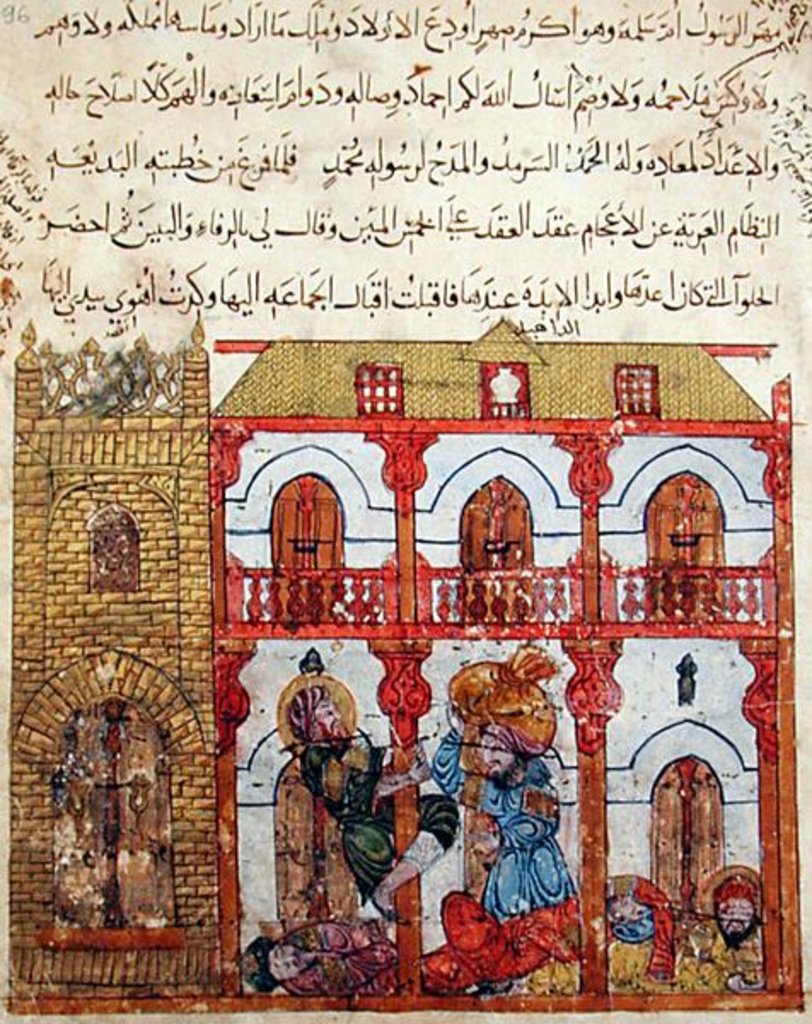 مهر الرسول أم سلمة وهو اكرم صهر اودع الاولاد وملك ما اراد وما سها مملكه ولا وهم
ولا وكس ملاحمه ولا وصم اسال الله لكم احماد وصاله ودوام اسعاده والهم كلا اصلاح حاله
والاعداد لمعاده وله الحمد السرمد والمدح لرسوله محمد فلما فرغ من خطبته البديعة
النظام العرية عن الاعجام عقد العقد على الخمس المئين وقال لي بالرفاء والبنين ثم احضر
الحلوآ التي كان اعدها وابدا الابدة عندها فاقبلت اقبال الجماعة اليها وكدت اهوي بيدي اليها
96